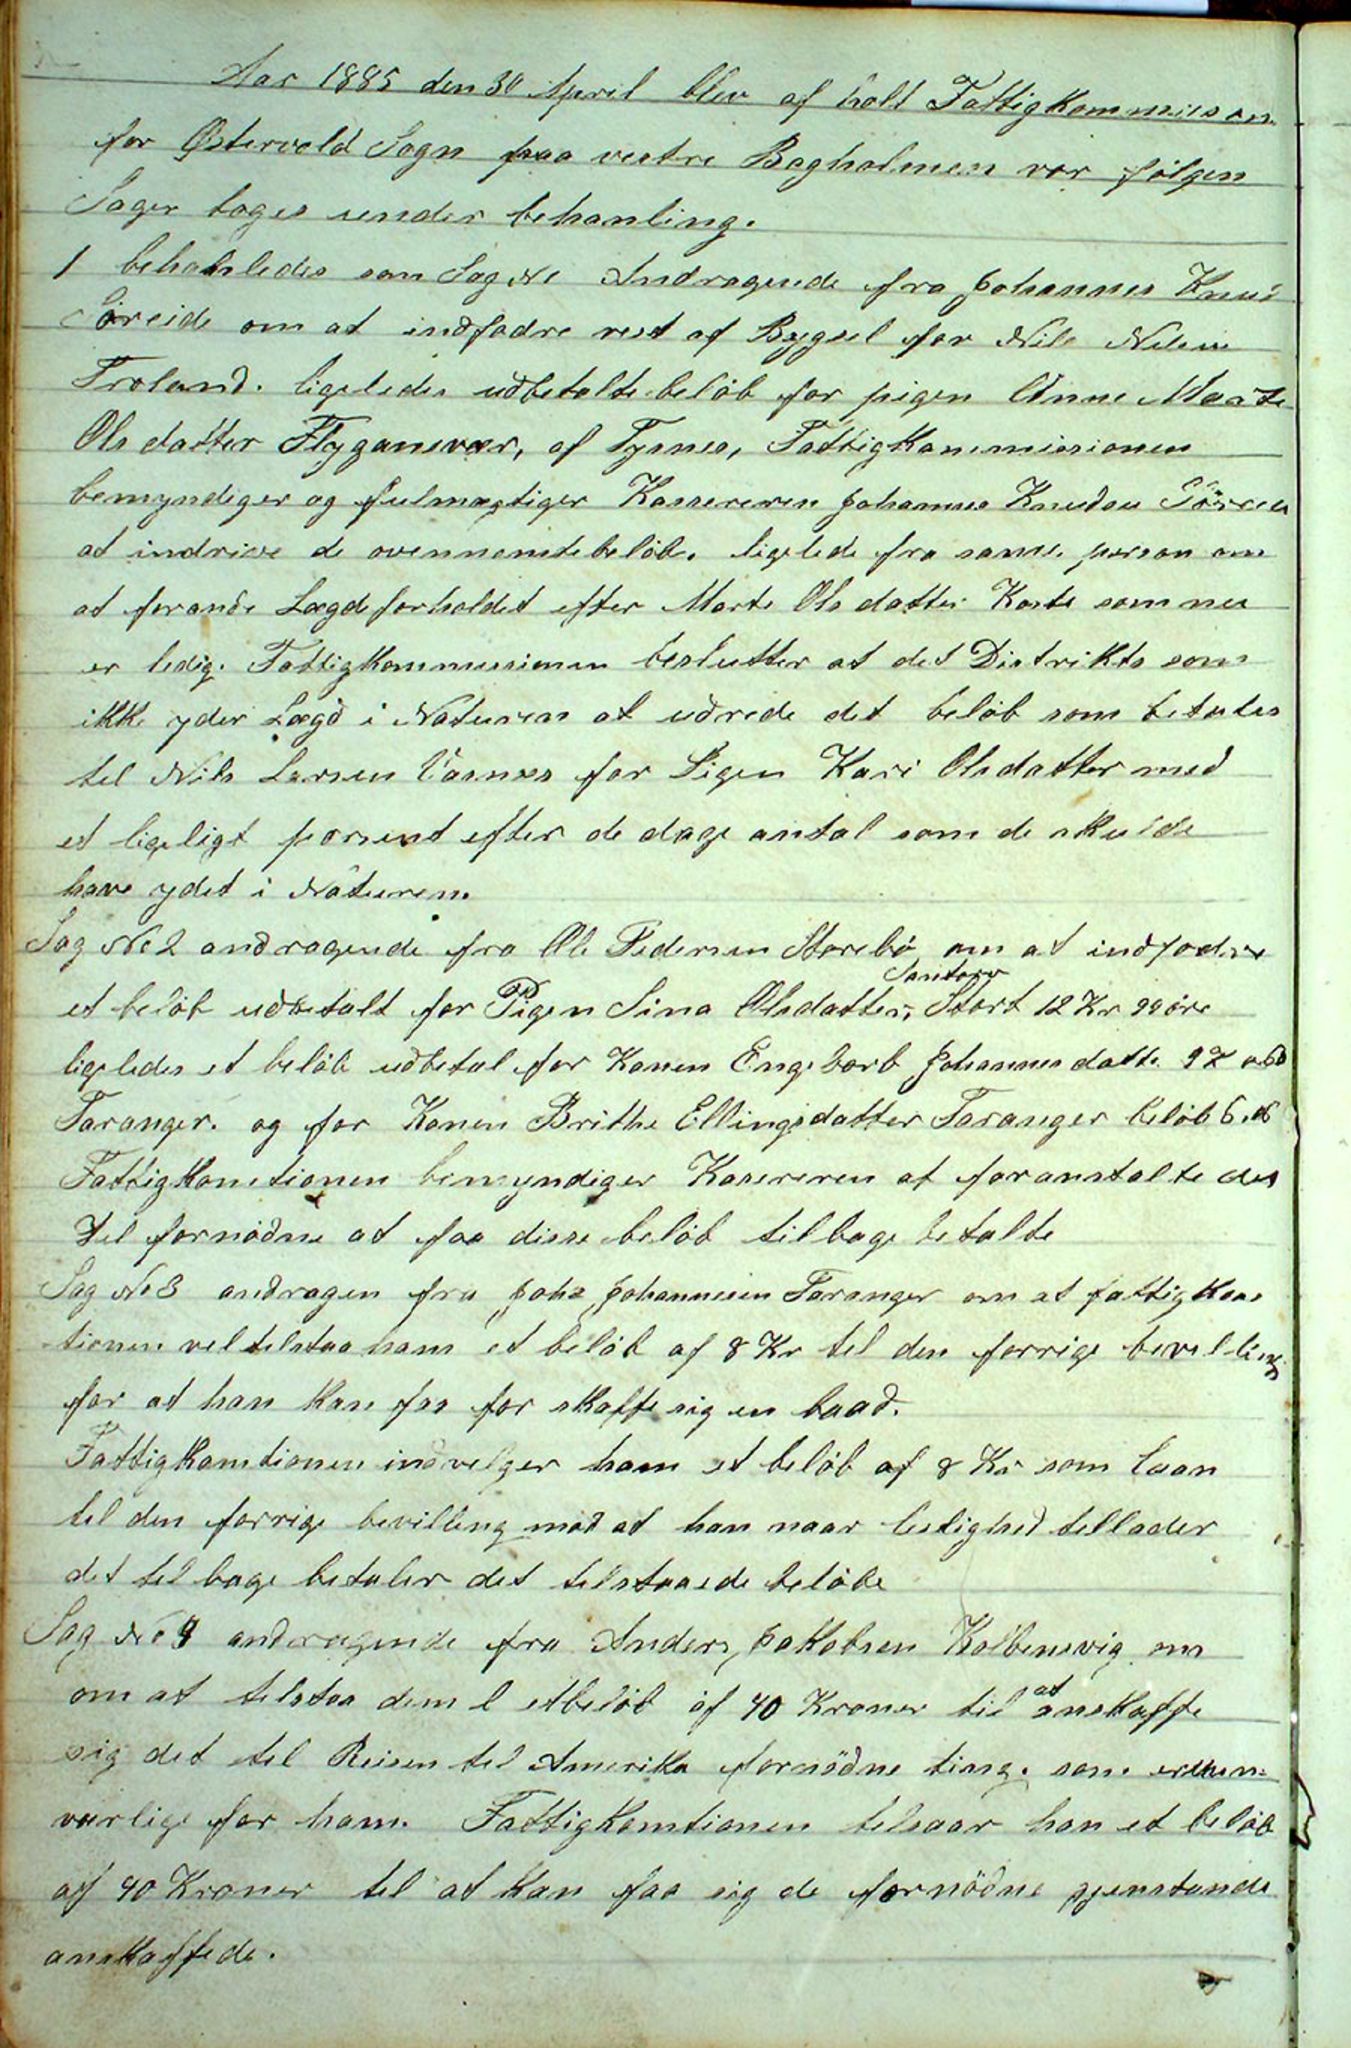 Aar 1885 den 30 April blev af holt Fattigkommission
for Østervold Sogn paa vestre Bagholmen vor følgen
Sager toges under behanling.
1 behandledes som Sag No 1 Andragende fra Johannes Knud
Söreide om at indfodre rest af Bygsel for Nils Nilsen
Troland. ligeledes udbetalte beløb for pigen Anne Marte
Olsdatter Flyganvær, af Tysnes, Fattigkommissionen
bemyndiger og fulmægtiger Kassereren Johannes Knudsen Sörreid
at indrive de ovennevnte beløb. ligelede fra samme person om
at forande Lægdeforholdet efter Marte Olsdatter Kaste som nu
er ledig. Fattigkommissionen beslutter at det Distrikts som
ikke yder Lægd i Naturen at udrede det beløb som betales
til Nils Larsen Vasnes for Pigen Kari Olsdatter med
et ligeligt porsent efter de dage antal som de skulde
have ydet i Naturen.
Sag No 2 andragende fra Ole Pedersen Storebø om at indfodre
et beløb udbetalt for Pigen Sina Olsdatter, Santorv Stort 12 Kr 99 øre
ligeledes et beløb udbetal for Konen Engeborb Johannesdatte
Taranger. og for Konen Brithe Ellingsdatter Taranger beløb
Fattigkomtionen bemyndiger Kasereren at foranstalte det
til fornødne at faa disse beløb tilbage betalte
Sag No 3 andragen fra Johs Johannesen Taranger om at fattigkom
tionen vel telstaa ham et beløb af 8 Kr til den forrige bevelling
for at han kan faa for skaffe sig en baad.
Fattigkomtionen indvelger ham et beløb af 8 Kr som Laan
til den forrige bevilling mod at han naar leilighed tellader
det telbage betaler det telstaaede beløbe
Sag No 4 andragende fra Anders Jakobsen Kolbensvig om
om at telstaa dem l et beløb af 40 Kroner til at anskaffe
sig det til Reisen til Amerika fornødne ting. som er uun
værlige for ham. Fattigkomtionen telsaar han et beløb
af 40 Kroner til at kan faa sig de fornödne gjenstande
anskaffede.